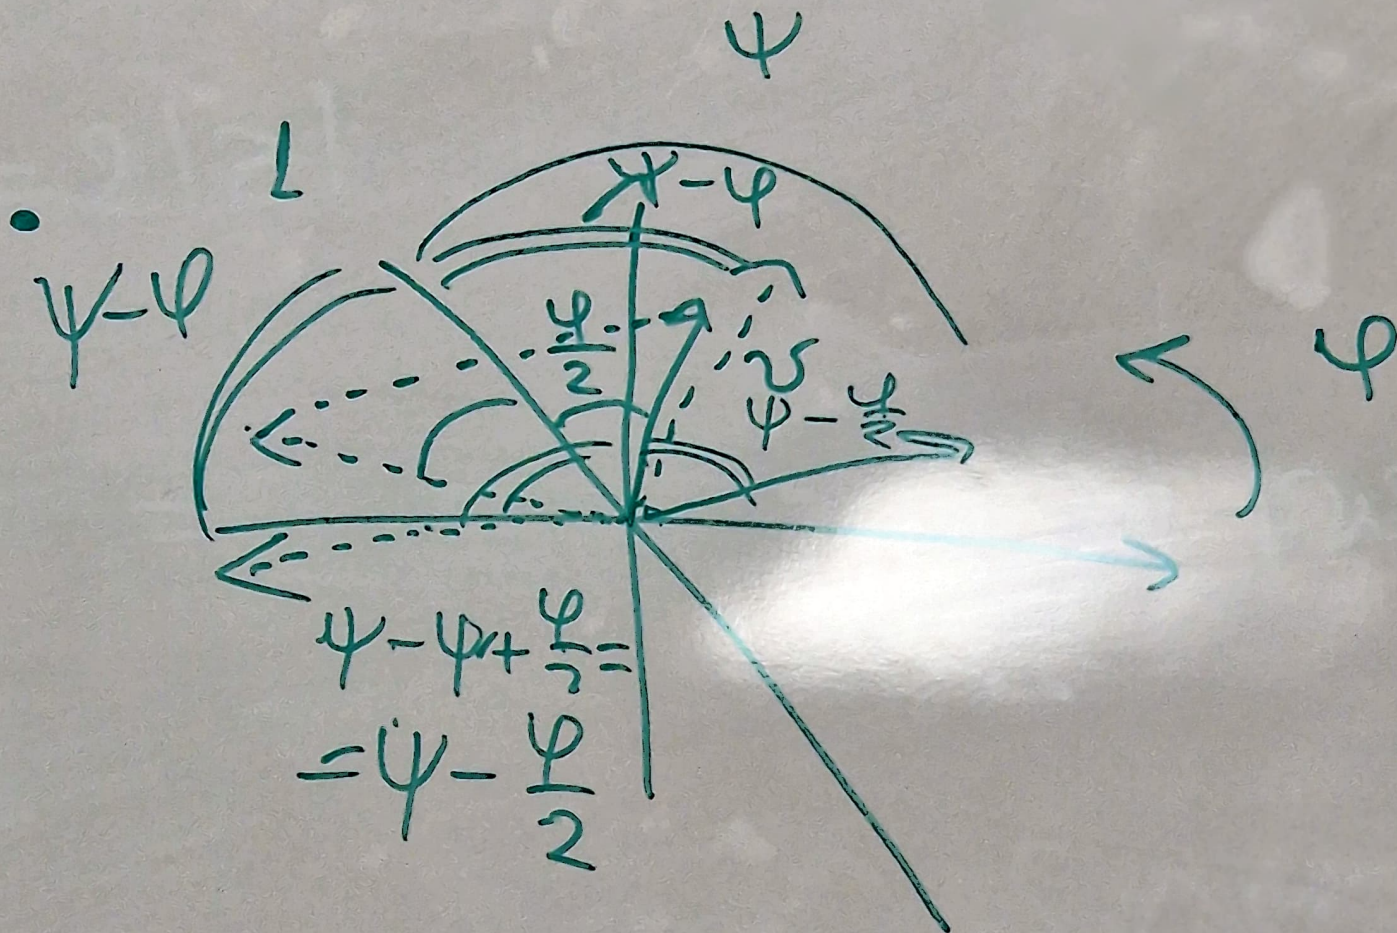 ψ
L
ψ-φ
ψ-φ
φ
φ/2
v
ψ-φ/2
ψ-φ+φ/2=
=ψ-φ/2